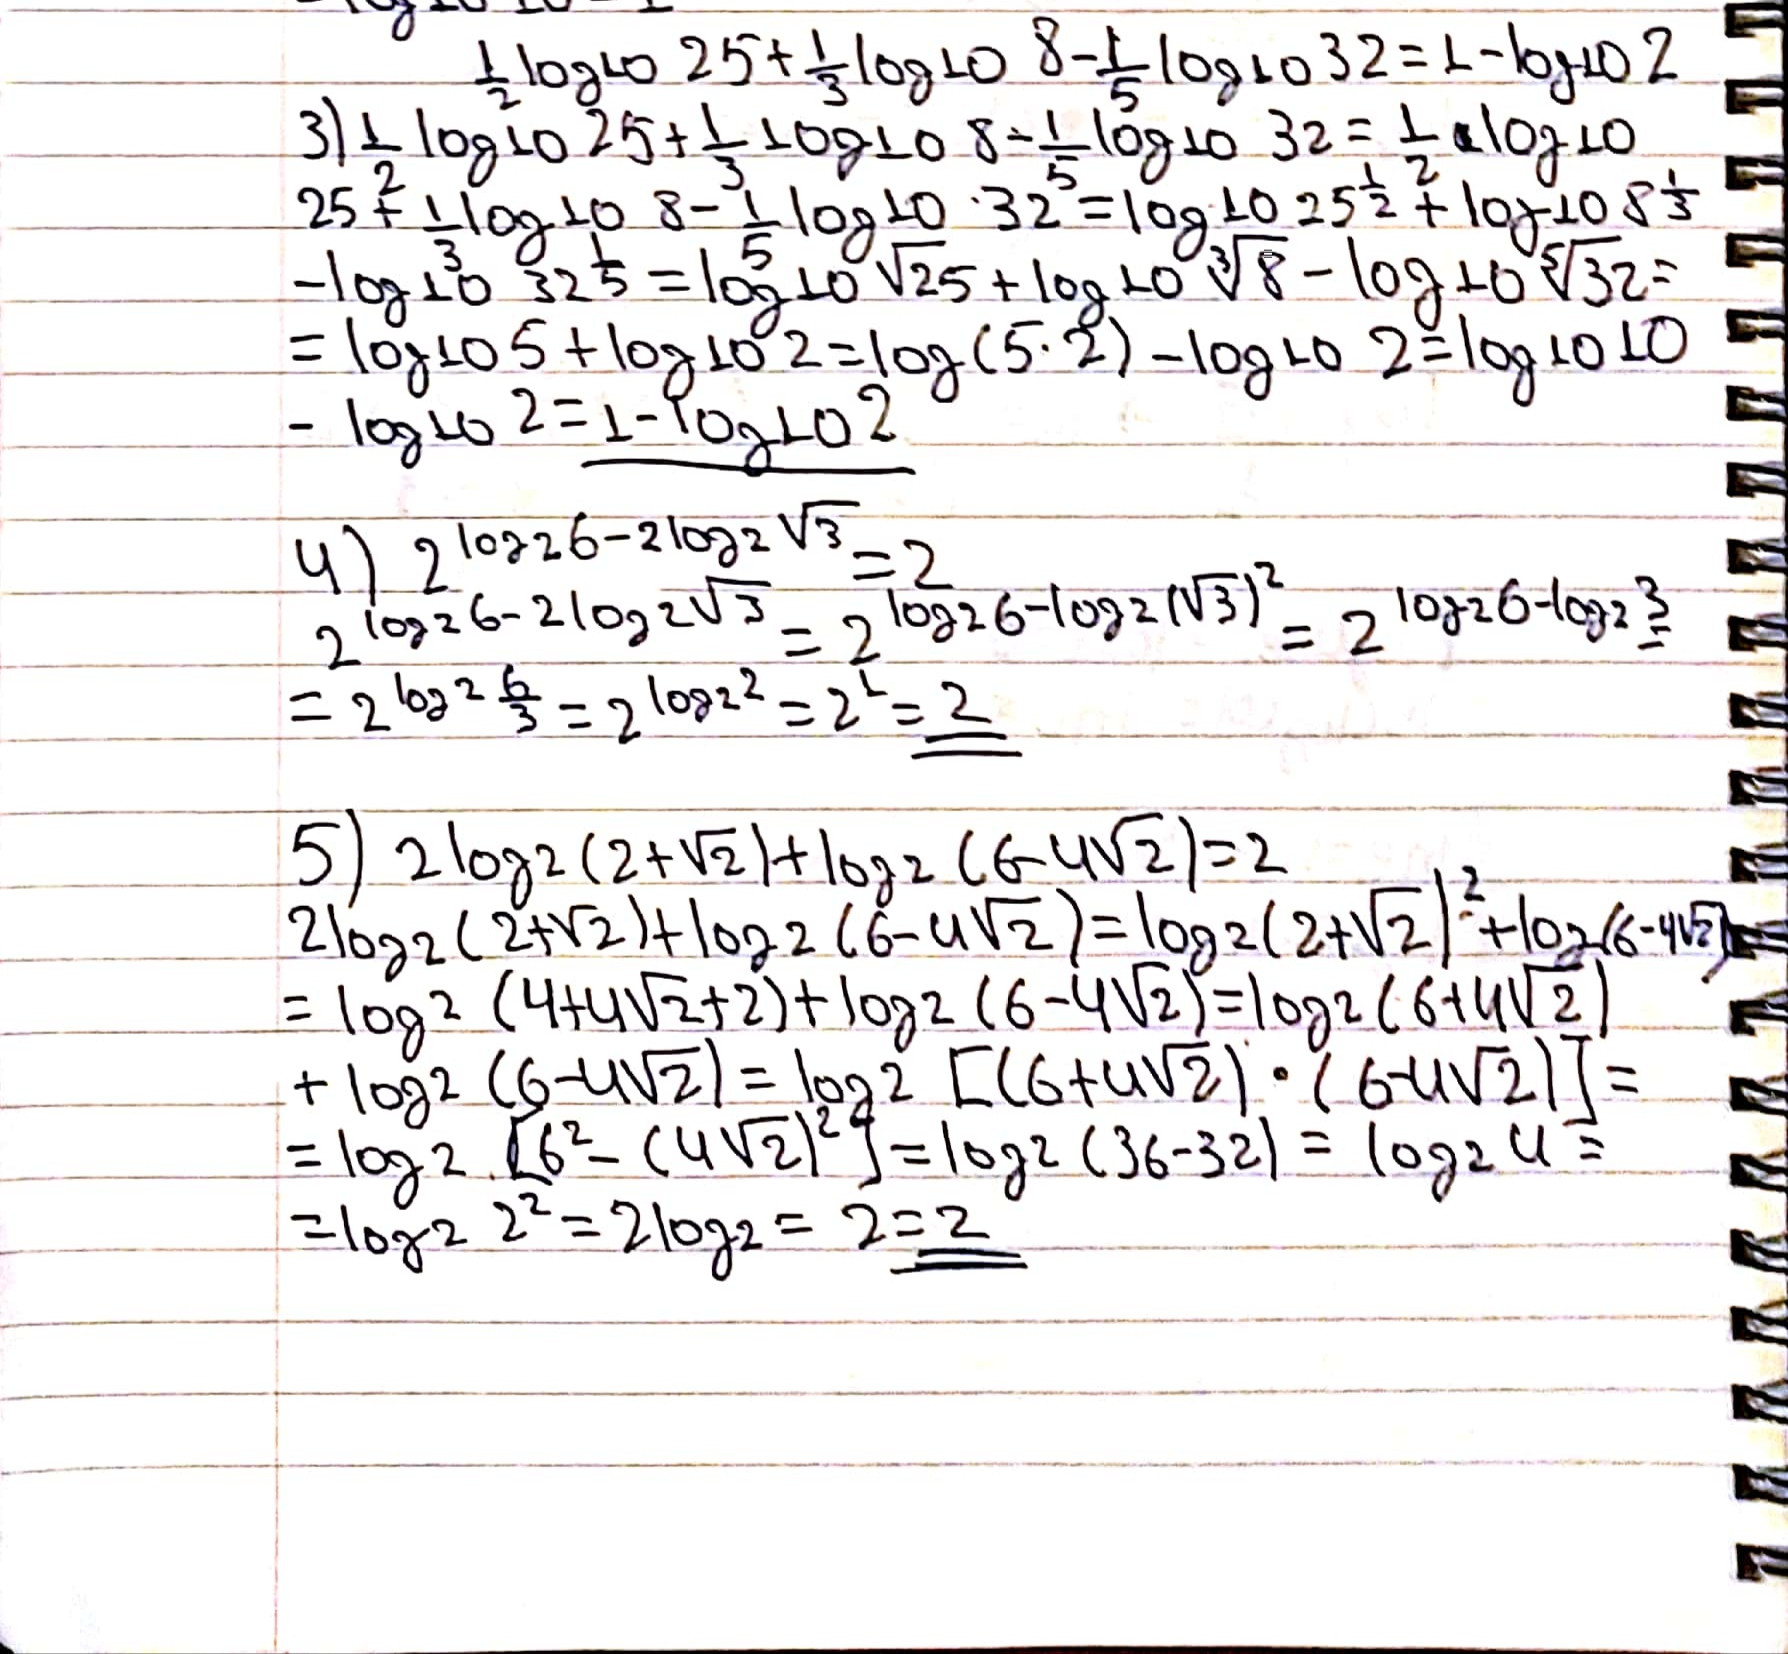 1/2 log10 25 + 1/3 log10 8 - 1/5 log10 32 = 1 - log10 2
3) 1/2 log10 25 + 1/3 log10 8 - 1/5 log10 32 = 1/2 log10
25 + 1/3 log10 8 - 1/5 log10 · 32 = log10 25^1/2 + log10 8^1/3
- log10 32^1/5 = log10 √25 + log10 ³√8 - log10 ⁵√32 =
= log10 5 + log10 2 = log(5·2) - log10 2 = log10 10
- log10 2 = 1 - log10 2
4) 2^(log2 6 - 2log2 √3) = 2
2^(log2 6 - 2log2 √3) = 2^(log2 6 - log2 (√3)²) = 2^(log2 6 - log2 3) =
= 2^(log2 6/3) = 2^(log2 2) = 2^1 = 2
5) 2log2 (2+√2) + log2 (6-4√2) = 2
2log2 (2+√2) + log2 (6-4√2) = log2 (2+√2)² + log2 (6-4√2)
= log2 (4+4√2+2) + log2 (6-4√2) = log2 (6+4√2)
+ log2 (6-4√2) = log2 [(6+4√2) · (6-4√2)] =
= log2 [6² - (4√2)²] = log2 (36-32) = log2 4 =
= log2 2² = 2log2 = 2 = 2